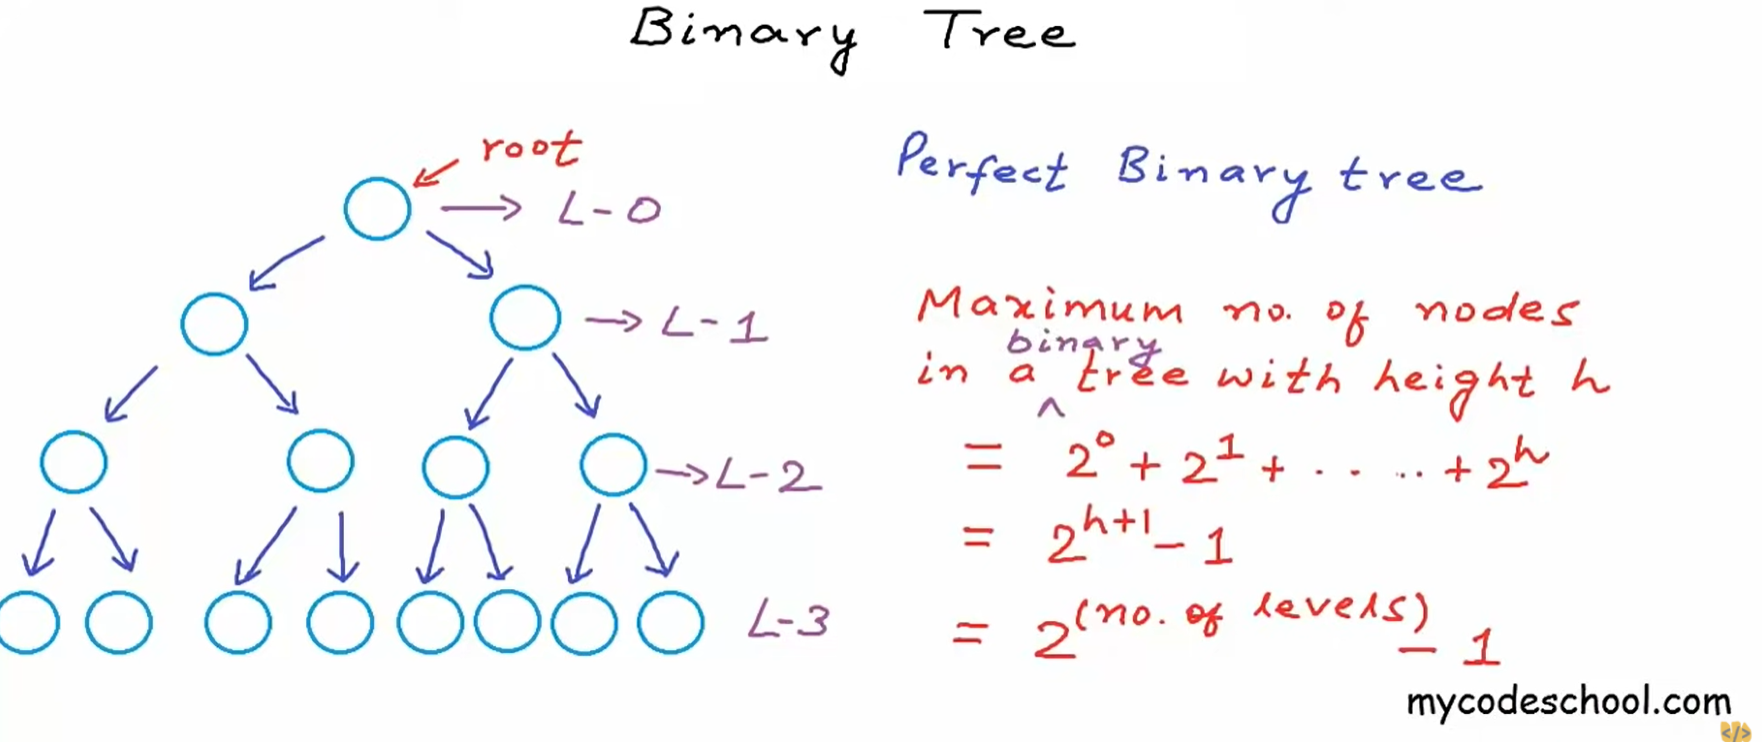 Binary Tree
root
L-0
L-1
L-2
L-3
Perfect Binary tree
Maximum no. of nodes
binary
in a ^ tree with height h
= 2^0 + 2^1 + . . . .. + 2^h
= 2^(h+1) - 1
= 2^(no. of levels) - 1
mycodeschool.com
</>